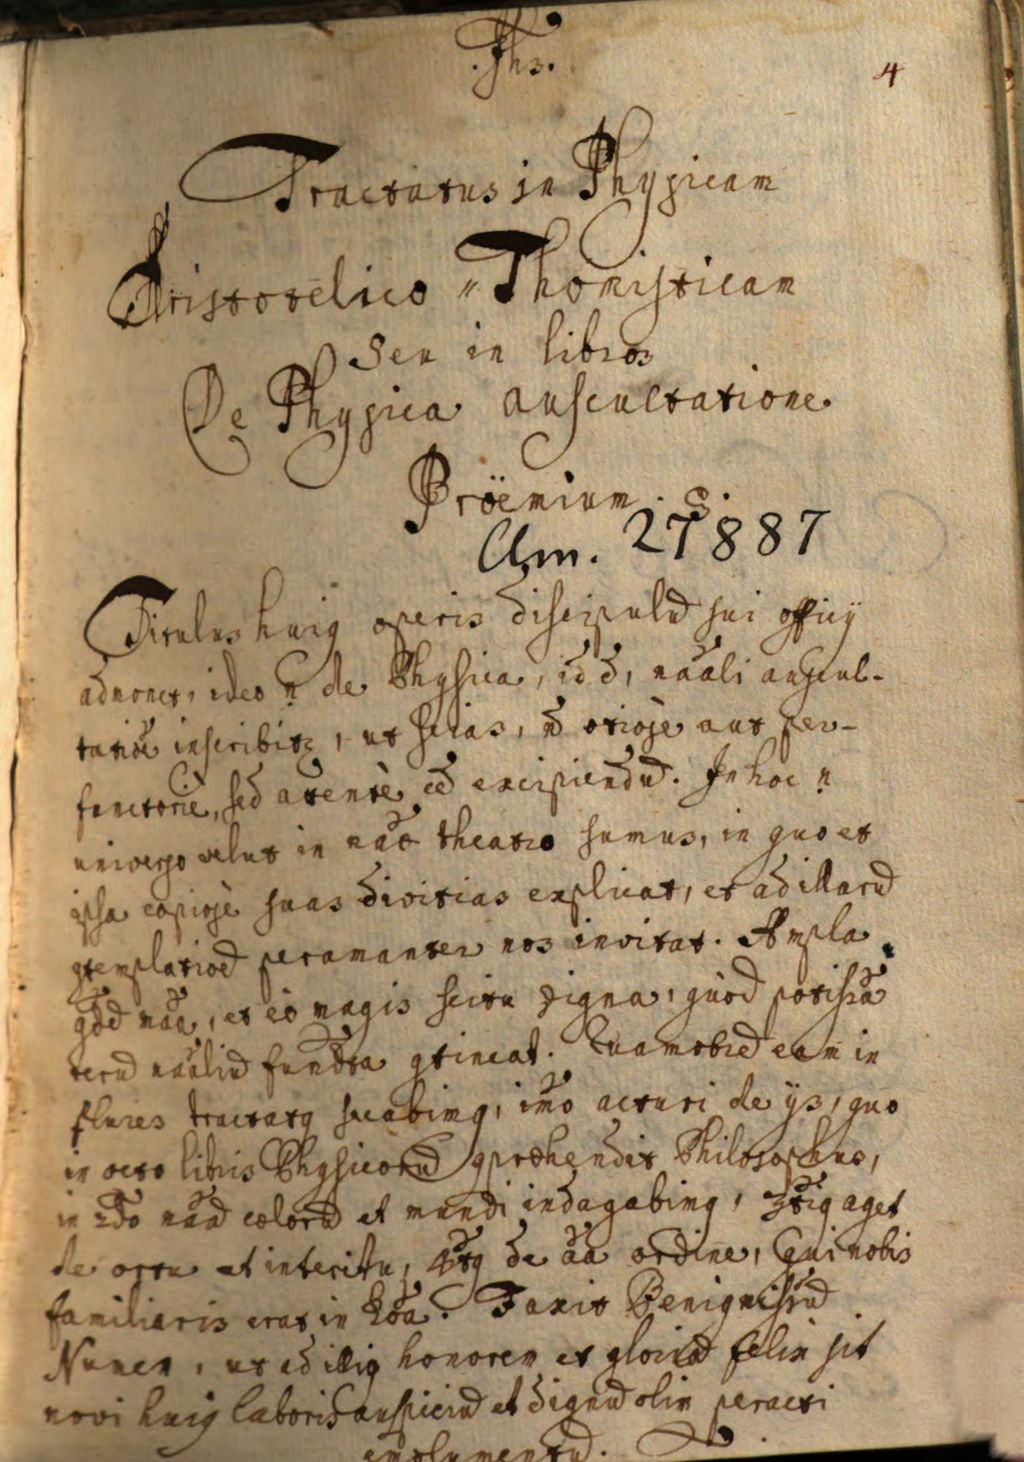 Jhs.
4
Tractatus in Physicam
Aristotelico = Thomisticam
Seu in libros
De Physica auscultatione
Pröemium.
Clm. 27887
Titulus huiꝯ operis discipulũ sui officij
admonet, ideo n̄ de Physica, id ē, nãali auscul-
tatiõe inscribitꝛ, ut scias, nõ otiosè aut per-
functoriè, sed attentè eẽ excipiendũ. In hoc n̄
universo velut in nãae theatro sumus, in quo et
ipsa copiosè suas divitias explicat, et ad illarũ
ꝯtemplatioẽ peramanter nos invitat. Ampla
qdẽ mãa, et eò magis scitu digna, quòd potissĩa
rerũ nãaliũ fundãta ꝯtineat. Quamobrẽ eam in
plures tractatꝯ secabimꝯ, imò acturi de ijs, quae
in octo libris Physicorũ ꝯprehendit Philosophus,
in 2do nãam coelorũ et mundi indagabimꝯ, 3tiꝯ aget
de ortu et interitu, 4tꝯ de ãa ordine, qui nobis
familiaris erat in
Faxit Benignissimũ
Numen, ut ad illiꝯ honorem et gloriã felix sit
novi huiꝯ laboris auspiciũ et dignũ olim peracti
emolumentũ.